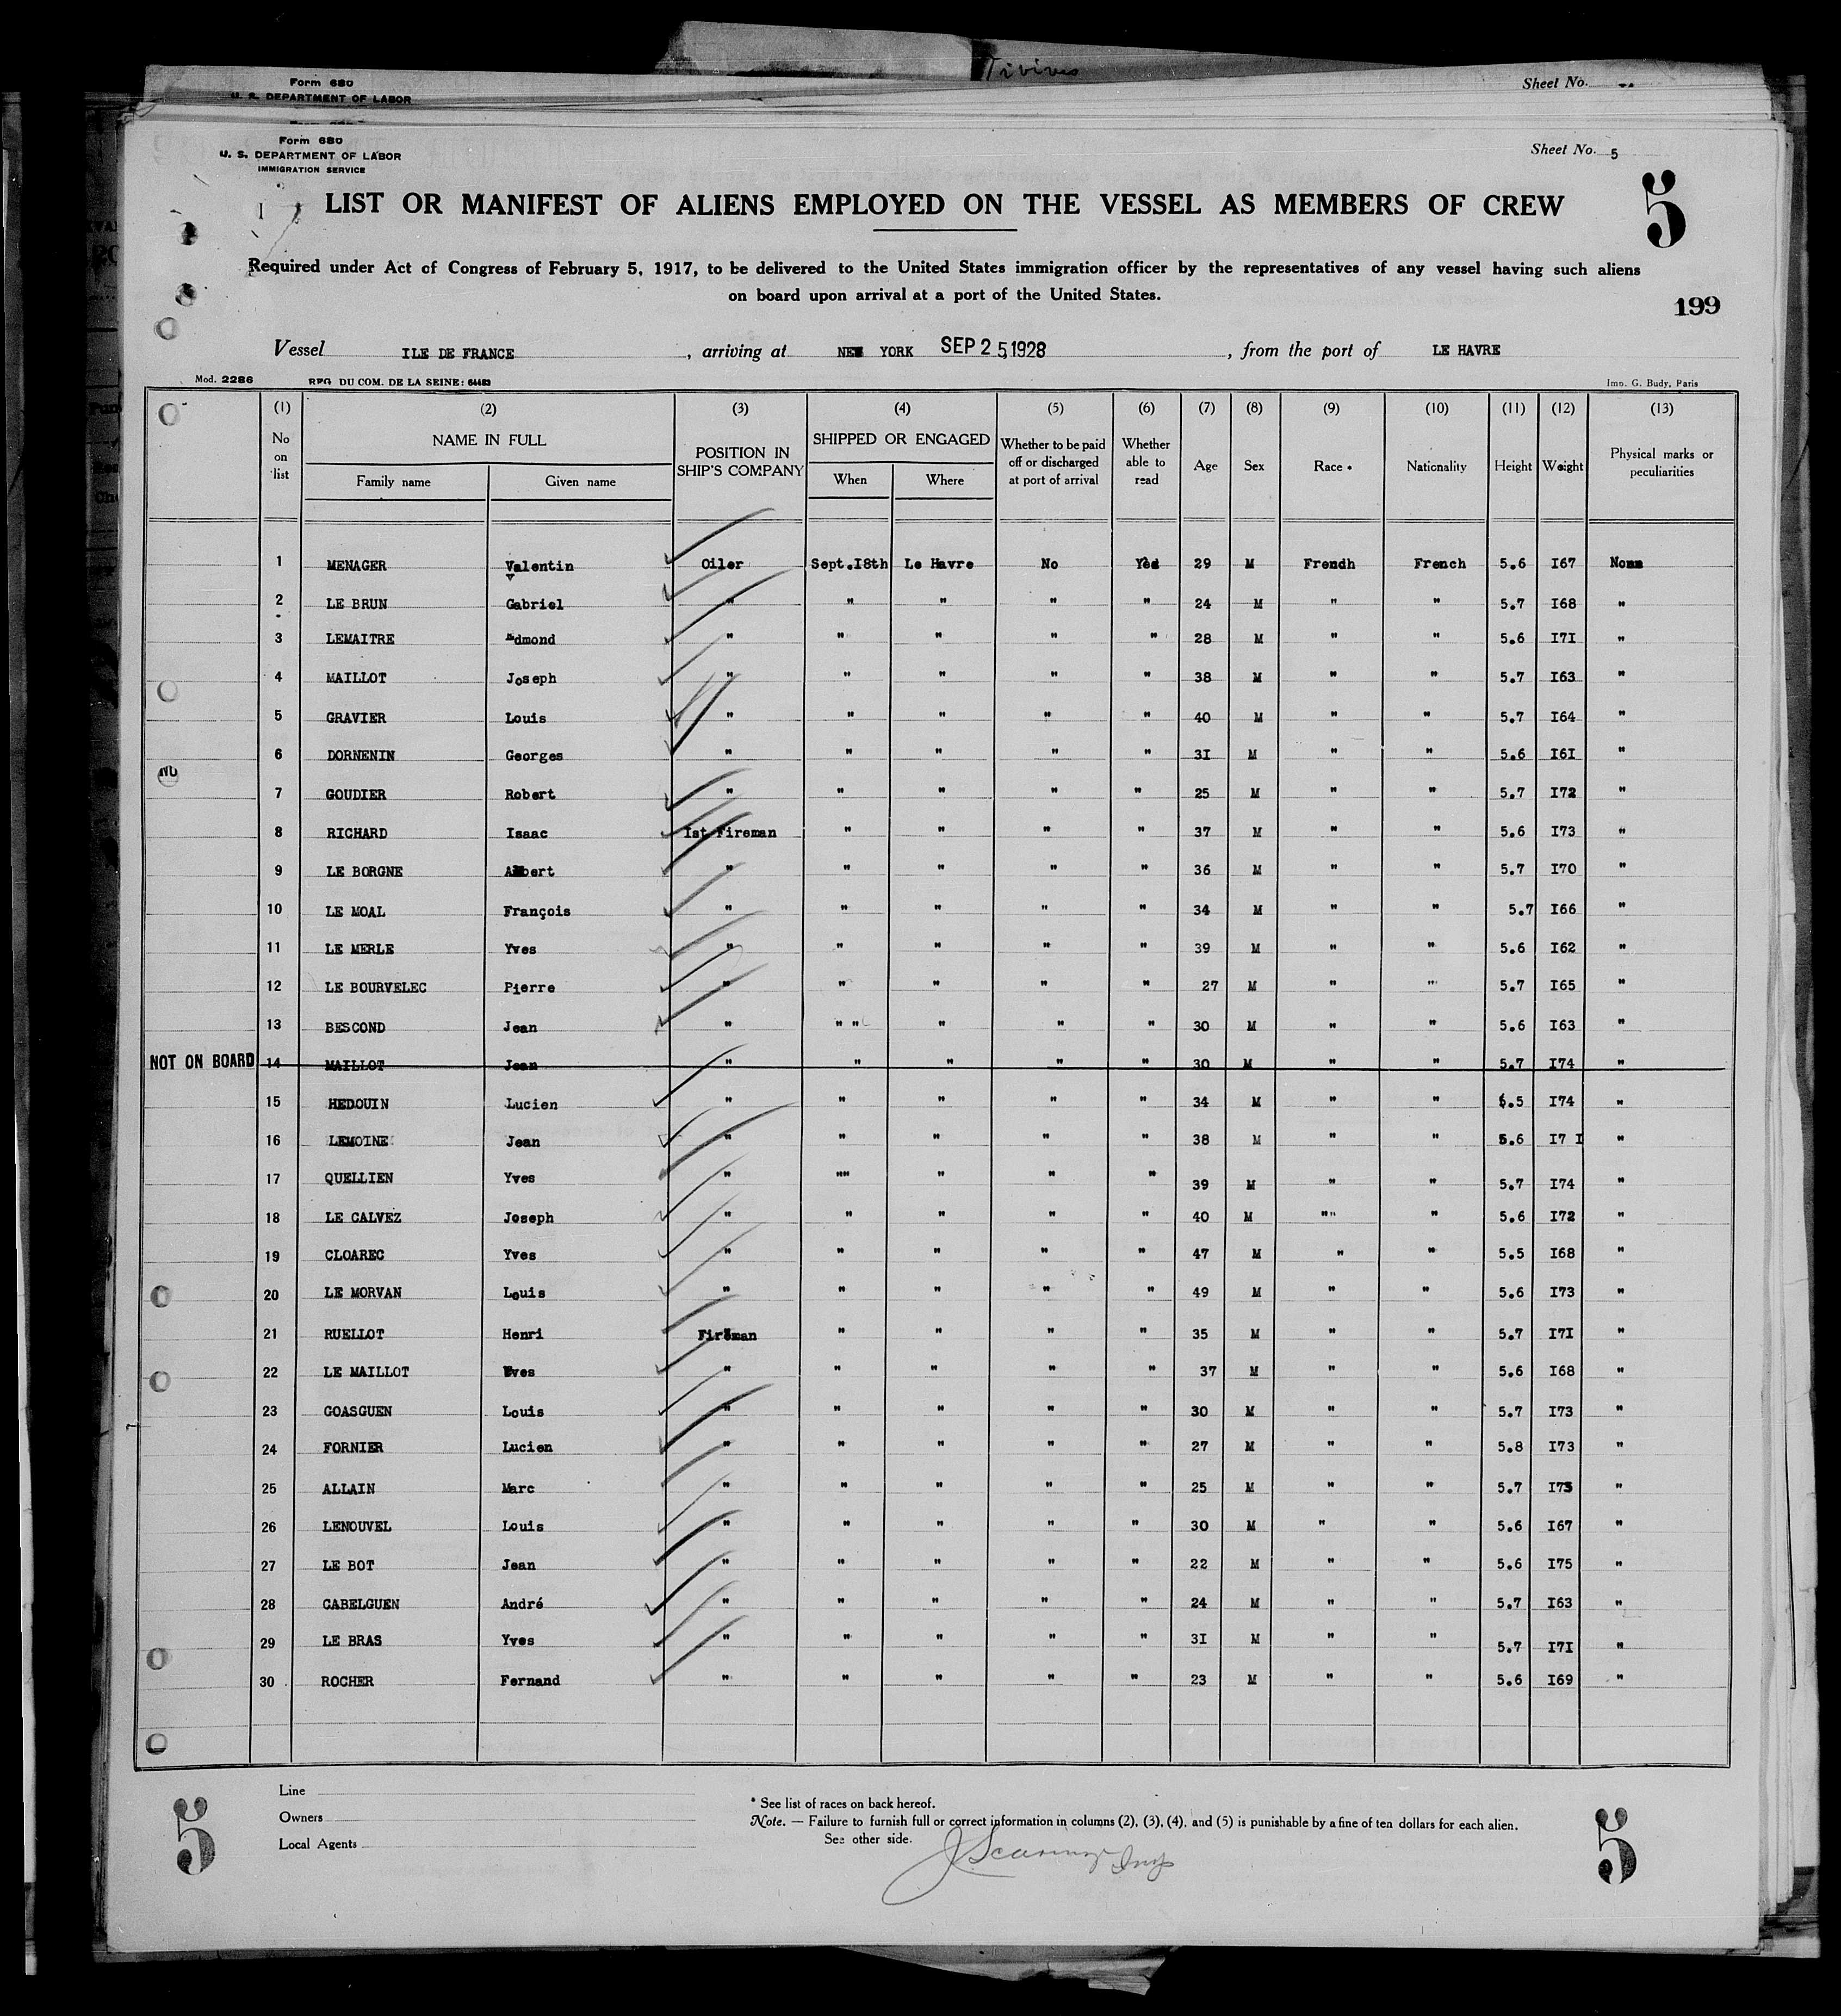 Tivives
Form 680
U. S. DEPARTMENT OF LABOR
Sheet No.
Form 680
U. S. DEPARTMENT OF LABOR
IMMIGRATION SERVICE
Sheet No. 5
5
LIST OR MANIFEST OF ALIENS EMPLOYED ON THE VESSEL AS MEMBERS OF CREW
Required under Act of Congress of February 5, 1917, to be delivered to the United States immigration officer by the representatives of any vessel having such aliens
on board upon arrival at a port of the United States.
199
Vessel ILE DE FRANCE, arriving at NEW YORK SEP 25 1928, from the port of LE HAVRE
Mod. 2286 REG. DU COM. DE LA SEINE: 64483 Imp. G. Budy, Paris
(1) (2) (3) (4) (5) (6) (7) (8) (9) (10) (11) (12) (13)
No on list NAME IN FULL Family name Given name POSITION IN SHIP'S COMPANY SHIPPED OR ENGAGED When Where Whether to be paid off or discharged at port of arrival Whether able to read Age Sex Race * Nationality Height Weight Physical marks or peculiarities
1 MENAGER Valentin Oiler Sept.I8th Le Havre No Yes 29 M Frendh French 5.6 I67 None
2 LE BRUN Gabriel " " " " " 24 M " " 5.7 I68 "
3 LEMAITRE Edmond " " " " " 28 M " " 5.6 I7I "
4 MAILLOT Joseph " " " " " 38 M " " 5.7 I63 "
5 GRAVIER Louis " " " " " 40 M " " 5.7 I64 "
6 DORNENIN Georges " " " " " 3I M " " 5.6 I6I "
7 GOUDIER Robert " " " " " 25 M " " 5.7 I72 "
8 RICHARD Isaac Ist Fireman " " " " 37 M " " 5.6 I73 "
9 LE BORGNE Albert " " " " " 36 M " " 5.7 I70 "
10 LE MOAL François " " " " " 34 M " " 5.7 I66 "
11 LE MERLE Yves " " " " " 39 M " " 5.6 I62 "
12 LE BOURVELEC Pierre " " " " " 27 M " " 5.7 I65 "
13 BESCOND Jean " " " " " " 30 M " " 5.6 I63 "
NOT ON BOARD 14 MAILLOT Jean " " " " " 30 M " " 5.7 I74 "
15 HEDOUIN Lucien " " " " " 34 M " " 5.5 I74 "
16 LEMOINE Jean " " " " " 38 M " " 5.6 I7 I
17 QUELLIEN Yves " "" " " " 39 M " " 5.7 I74 "
18 LE CALVEZ Joseph " " " " " 40 M "" " 5.6 I72 "
19 CLOAREC Yves " " " " " 47 M " " 5.5 I68 "
20 LE MORVAN Louis " " " " " 49 M " " 5.6 I73 "
21 RUELLOT Henri Fireman " " " " 35 M " " 5.7 I7I "
22 LE MAILLOT Yves " " " " " 37 M " " 5.6 I68 "
23 GOASGUEN Louis " " " " " 30 M " " 5.7 I73 "
24 FORNIER Lucien " " " " " 27 M " " 5.8 I73 "
25 ALLAIN Marc " " " " " 25 M " " 5.7 I75 "
26 LENOUVEL Louis " " " " " 30 M " " 5.6 I67 "
27 LE BOT Jean " " " " " 22 M " " 5.6 I75 "
28 CABELGUEN André " " " " " 24 M " " 5.7 I63 "
29 LE BRAS Yves " " " " " 3I M " " 5.7 I7I "
30 ROCHER Fernand " " " " " 23 M " " 5.6 I69 "
5
Line
Owners
Local Agents
* See list of races on back hereof.
Note. — Failure to furnish full or correct information in columns (2), (3), (4), and (5) is punishable by a fine of ten dollars for each alien.
See other side.
5